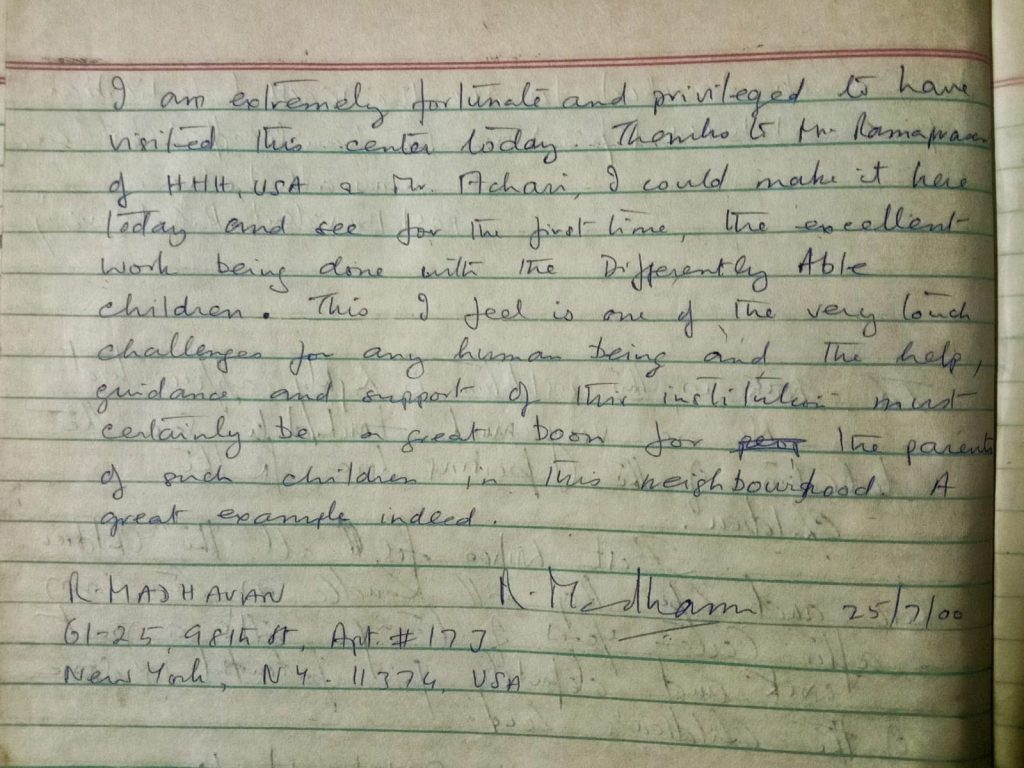 I am extremely fortunate and privileged to have
visited this center today. Thanks to Mr. Ramaprasad
of HHH, USA & Mr. Achari, I could make it here
today and see for the first time, the excellent
work being done with the Differently Able
children. This I feel is one of the very touch
challenges for any human being and the help,
guidance and support of this institution must
certainly be a great boon for the parents
of such children in this neighbourhood. A
great example indeed.
R. MADHAVAN R. Madhavan 25/7/00
61-25, 98th st, Apt. # 17 J
New York, NY. 11374, USA